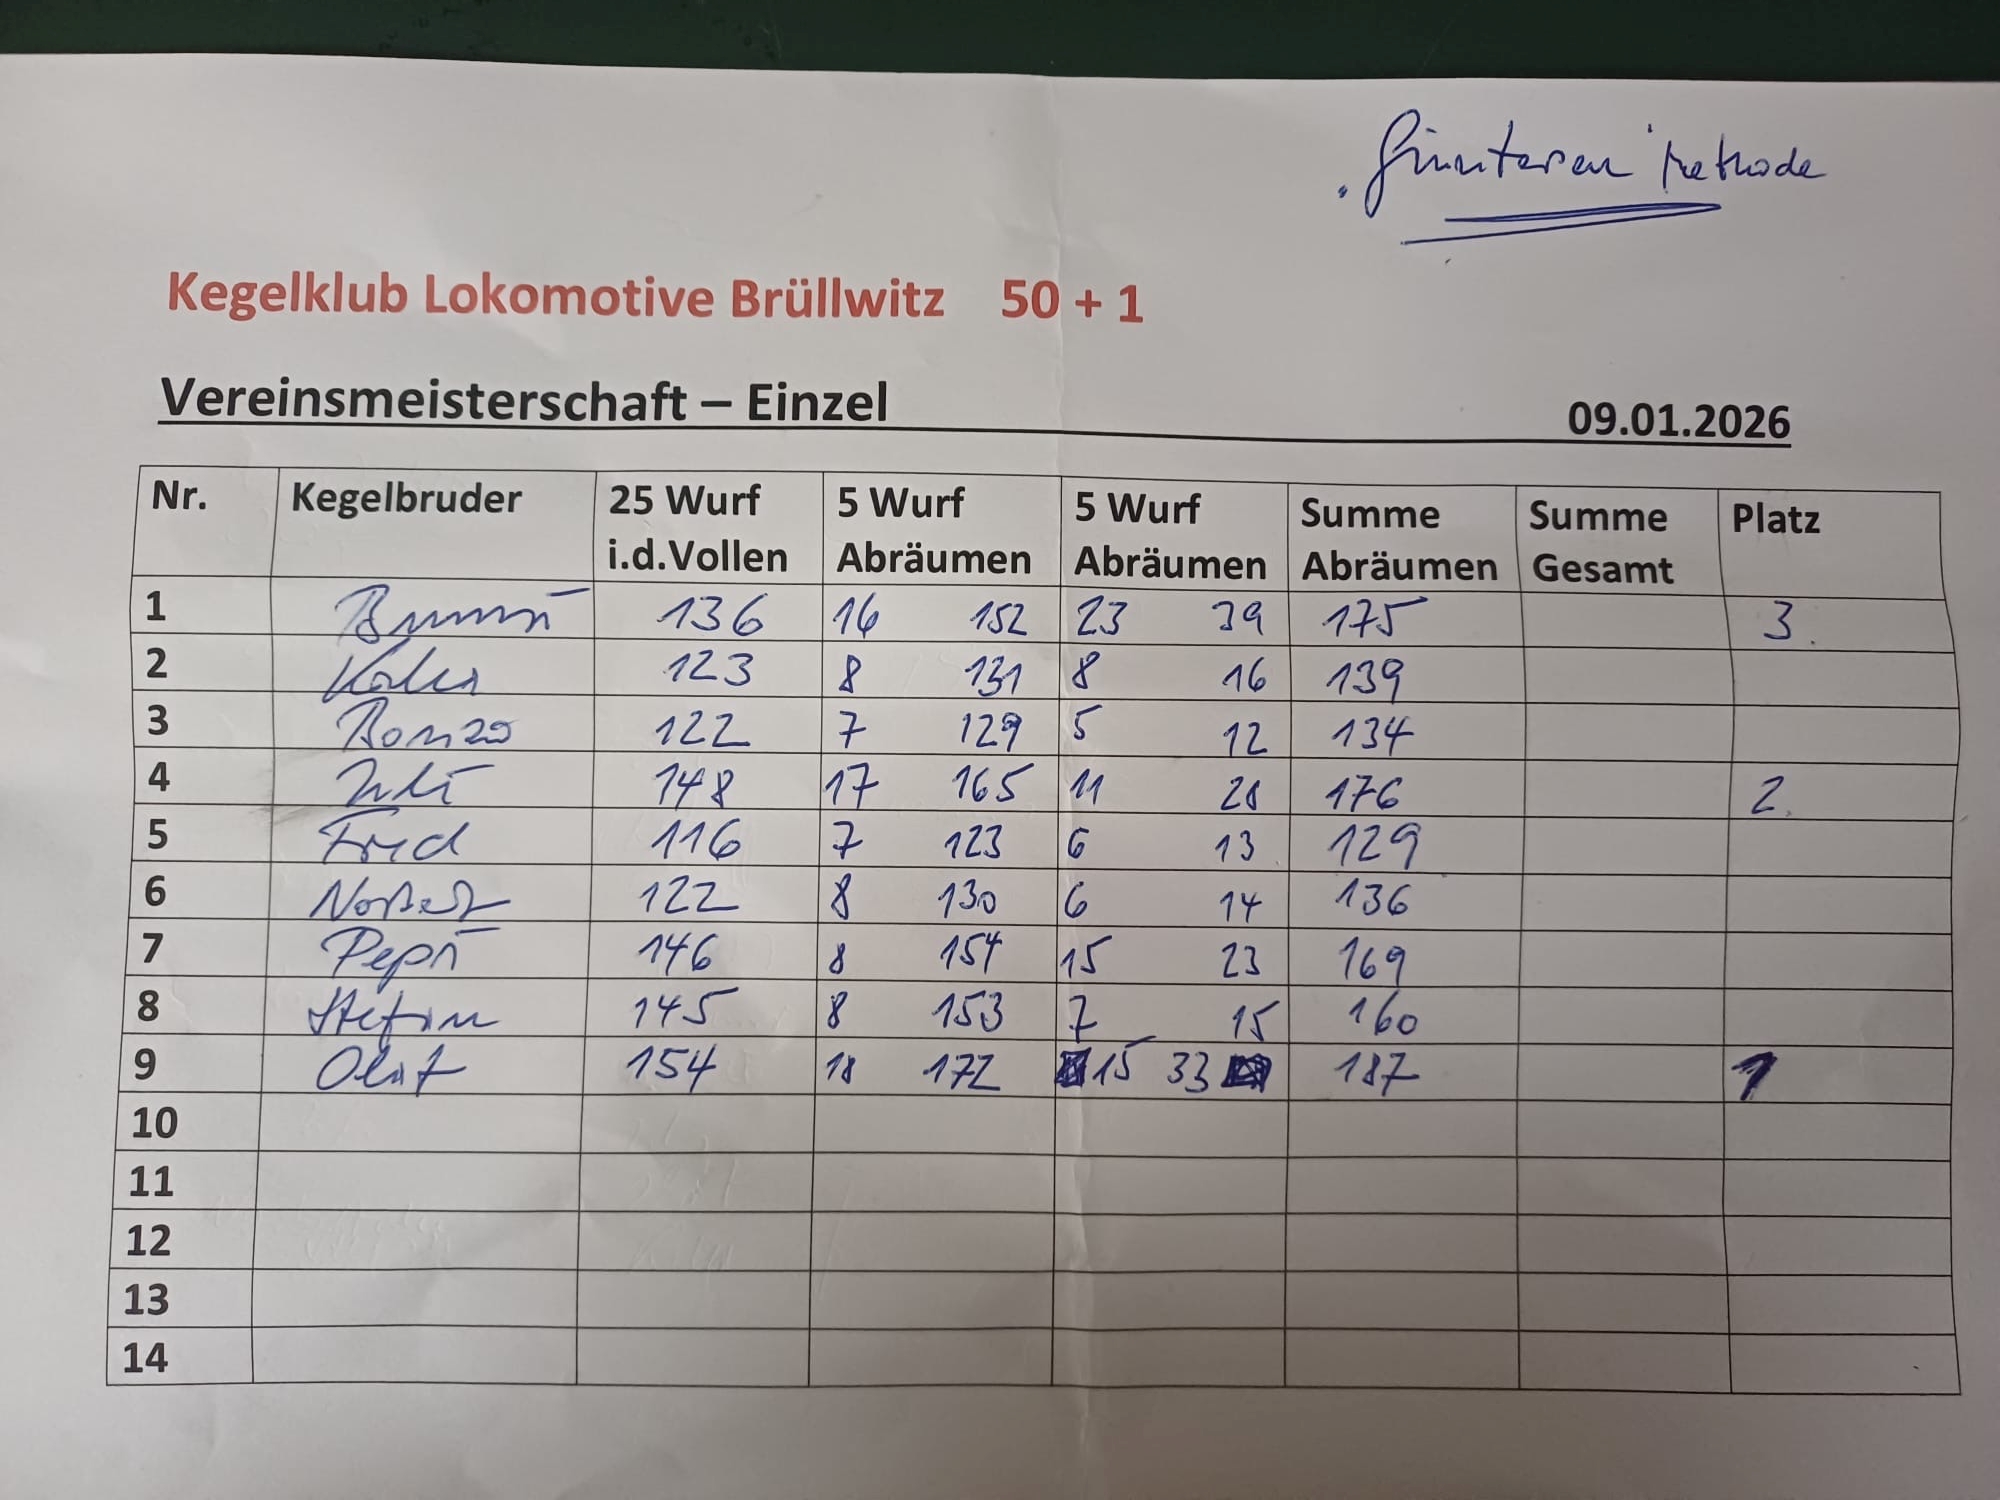 Methode
Kegelklub Lokomotive Brüllwitz 50 + 1
Vereinsmeisterschaft – Einzel 09.01.2026
Nr. Kegelbruder 25 Wurf i.d.Vollen 5 Wurf Abräumen 5 Wurf Abräumen Summe Abräumen Summe Gesamt Platz
1 136 16 152 23 39 175 3.
2 123 8 131 8 16 139
3 Bonzo 122 7 129 5 12 134
4 148 17 165 11 28 176 2.
5 Fred 116 7 123 6 13 129
6 Norbert 122 8 130 6 14 136
7 Pepi 146 8 154 15 23 169
8 Stefan 145 8 153 7 15 160
9 Olaf 154 18 172 15 33 187 1
10
11
12
13
14